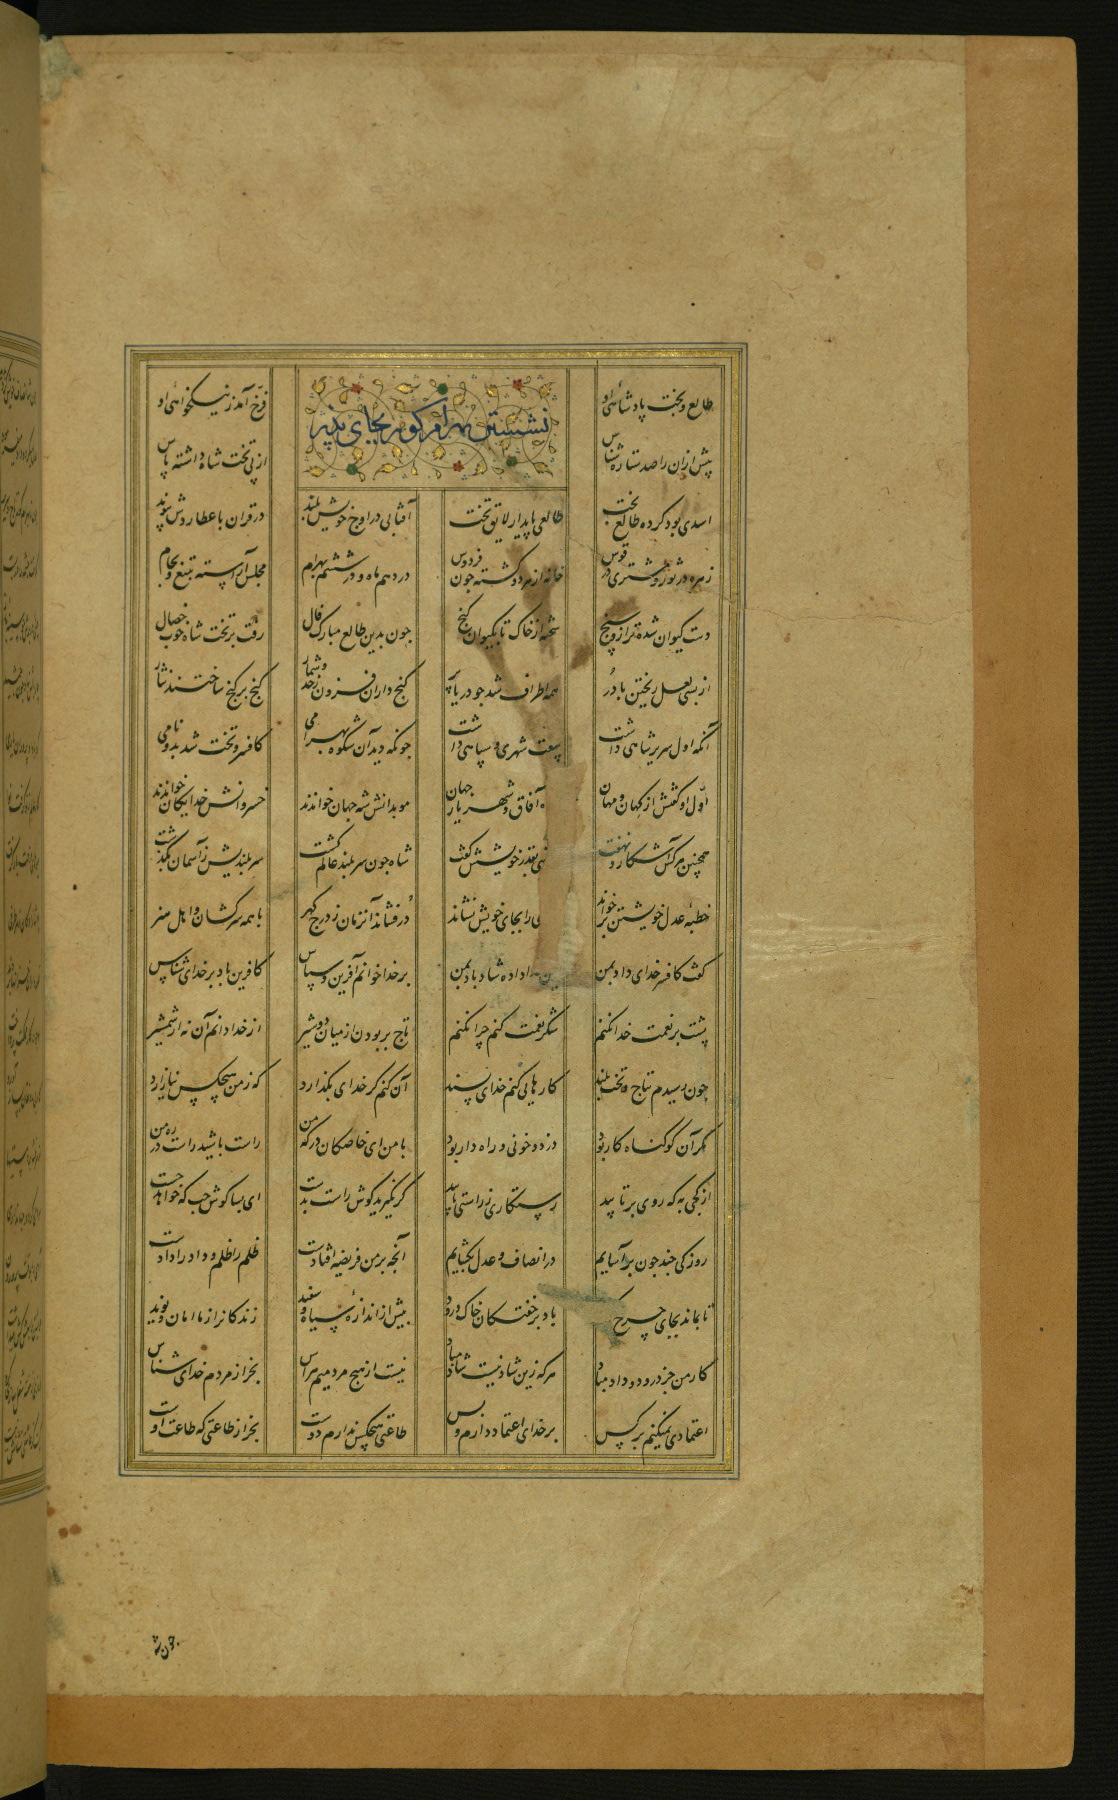 طالع و بخت پادشاهی او
فرخ آمد ز نیکخواهی او
نشستن بهرام کور بجای پذر
پیش ازان راصد ستاره شناس
از پی تخت شاه داشته پاس
اسدی بود کرده طالع بخت
طالعی پایدار لایق تخت
آفتابی در اوج خویش بلند
در قران با عطارد پیوند
زهره در ثور و مشتری در قوس
خانه از هر دو گشته چون فردوس
در دهم ماه و در ششم بهرام
مجلس آراسته بتیغ و بجام
دست کیوان شده ترازو سنج
سخته از خاک تا بکیوان گنج
چون بدین طالع مبارک فال
رفت بر تخت شاه خوب خصال
از بسی لعل ریختن با در
همه اطراف شد چو دریا پر
گنج داران فزون ز حد و شمار
گنج بر گنج ساختند نثار
آنکه اول سریر شاهی داشت
بیعت شهری و سپاهی داشت
چونکه دید آن شکوه بهرامی
کافسر و تخت شد بدو نامی
اول او گفتش از کهان و مهان
آفاق و شهریار جهان
موبدانش شه جهان خواندند
خسروانش خدایگان خواندند
همچنین هر کس آشکار و نهفت
بقدر خویشش گفت
شاه چون سر بلند عالم گشت
سر بلندیش ز آسمان بگذشت
خطبه عدل خویشتن برخواند
را بجای خویش نشاند
در فشاند آنزمان ز درج گهر
با همه سرکشان و اهل هنر
گفت کافسر خدای داد بمن
داده شاد باد بمن
بر خدا خوانم آفرین و سپاس
کافرین باد بر خدای شناس
پشت بر نعمت خدا نکنم
شکر نعمت کنم چرا نکنم
تاج بر بودن از میان دو شیر
از خدا دانم آن نه از شمشیر
چون رسیدم بتاج و تخت بلند
کارهایی کنم خدای پسند
آن کنم گر خدای بگذارد
که ز من هیچکس نیازارد
مگر آن کو گناه کار بود
دزد و خونی و راه دار بود
با من ای خاصگان درگه من
راست باشید راست در ره من
از کجی به که روی برتابید
رستکاری ز راستی یابید
گر نگیرید گوش راست بدست
ای بسا گوش چپ که خواهد جست
روزکی چند چون برآسایم
در انصاف و عدل بگشایم
آنچه بر من فریضه افتادست
ظلم را ظلم و داد را دادست
تا بماند بجای چرخ
باد بر خفتگان خاک درود
بیش از اندازه سیاه و سفید
زندگانرا ز ما امان و نوید
کار من جز درود و داد مباد
هر که زین شاد نیست شاد مباد
نیست از هیچ مردمیم هراس
بجز از مردم خدای شناس
اعتمادی نمیکنم بر کس
بر خدای اعتماد دارم و بس
طاعتی هیچکس ندارم دوست
بجز از طاعتی که طاعت اوست
چون شه